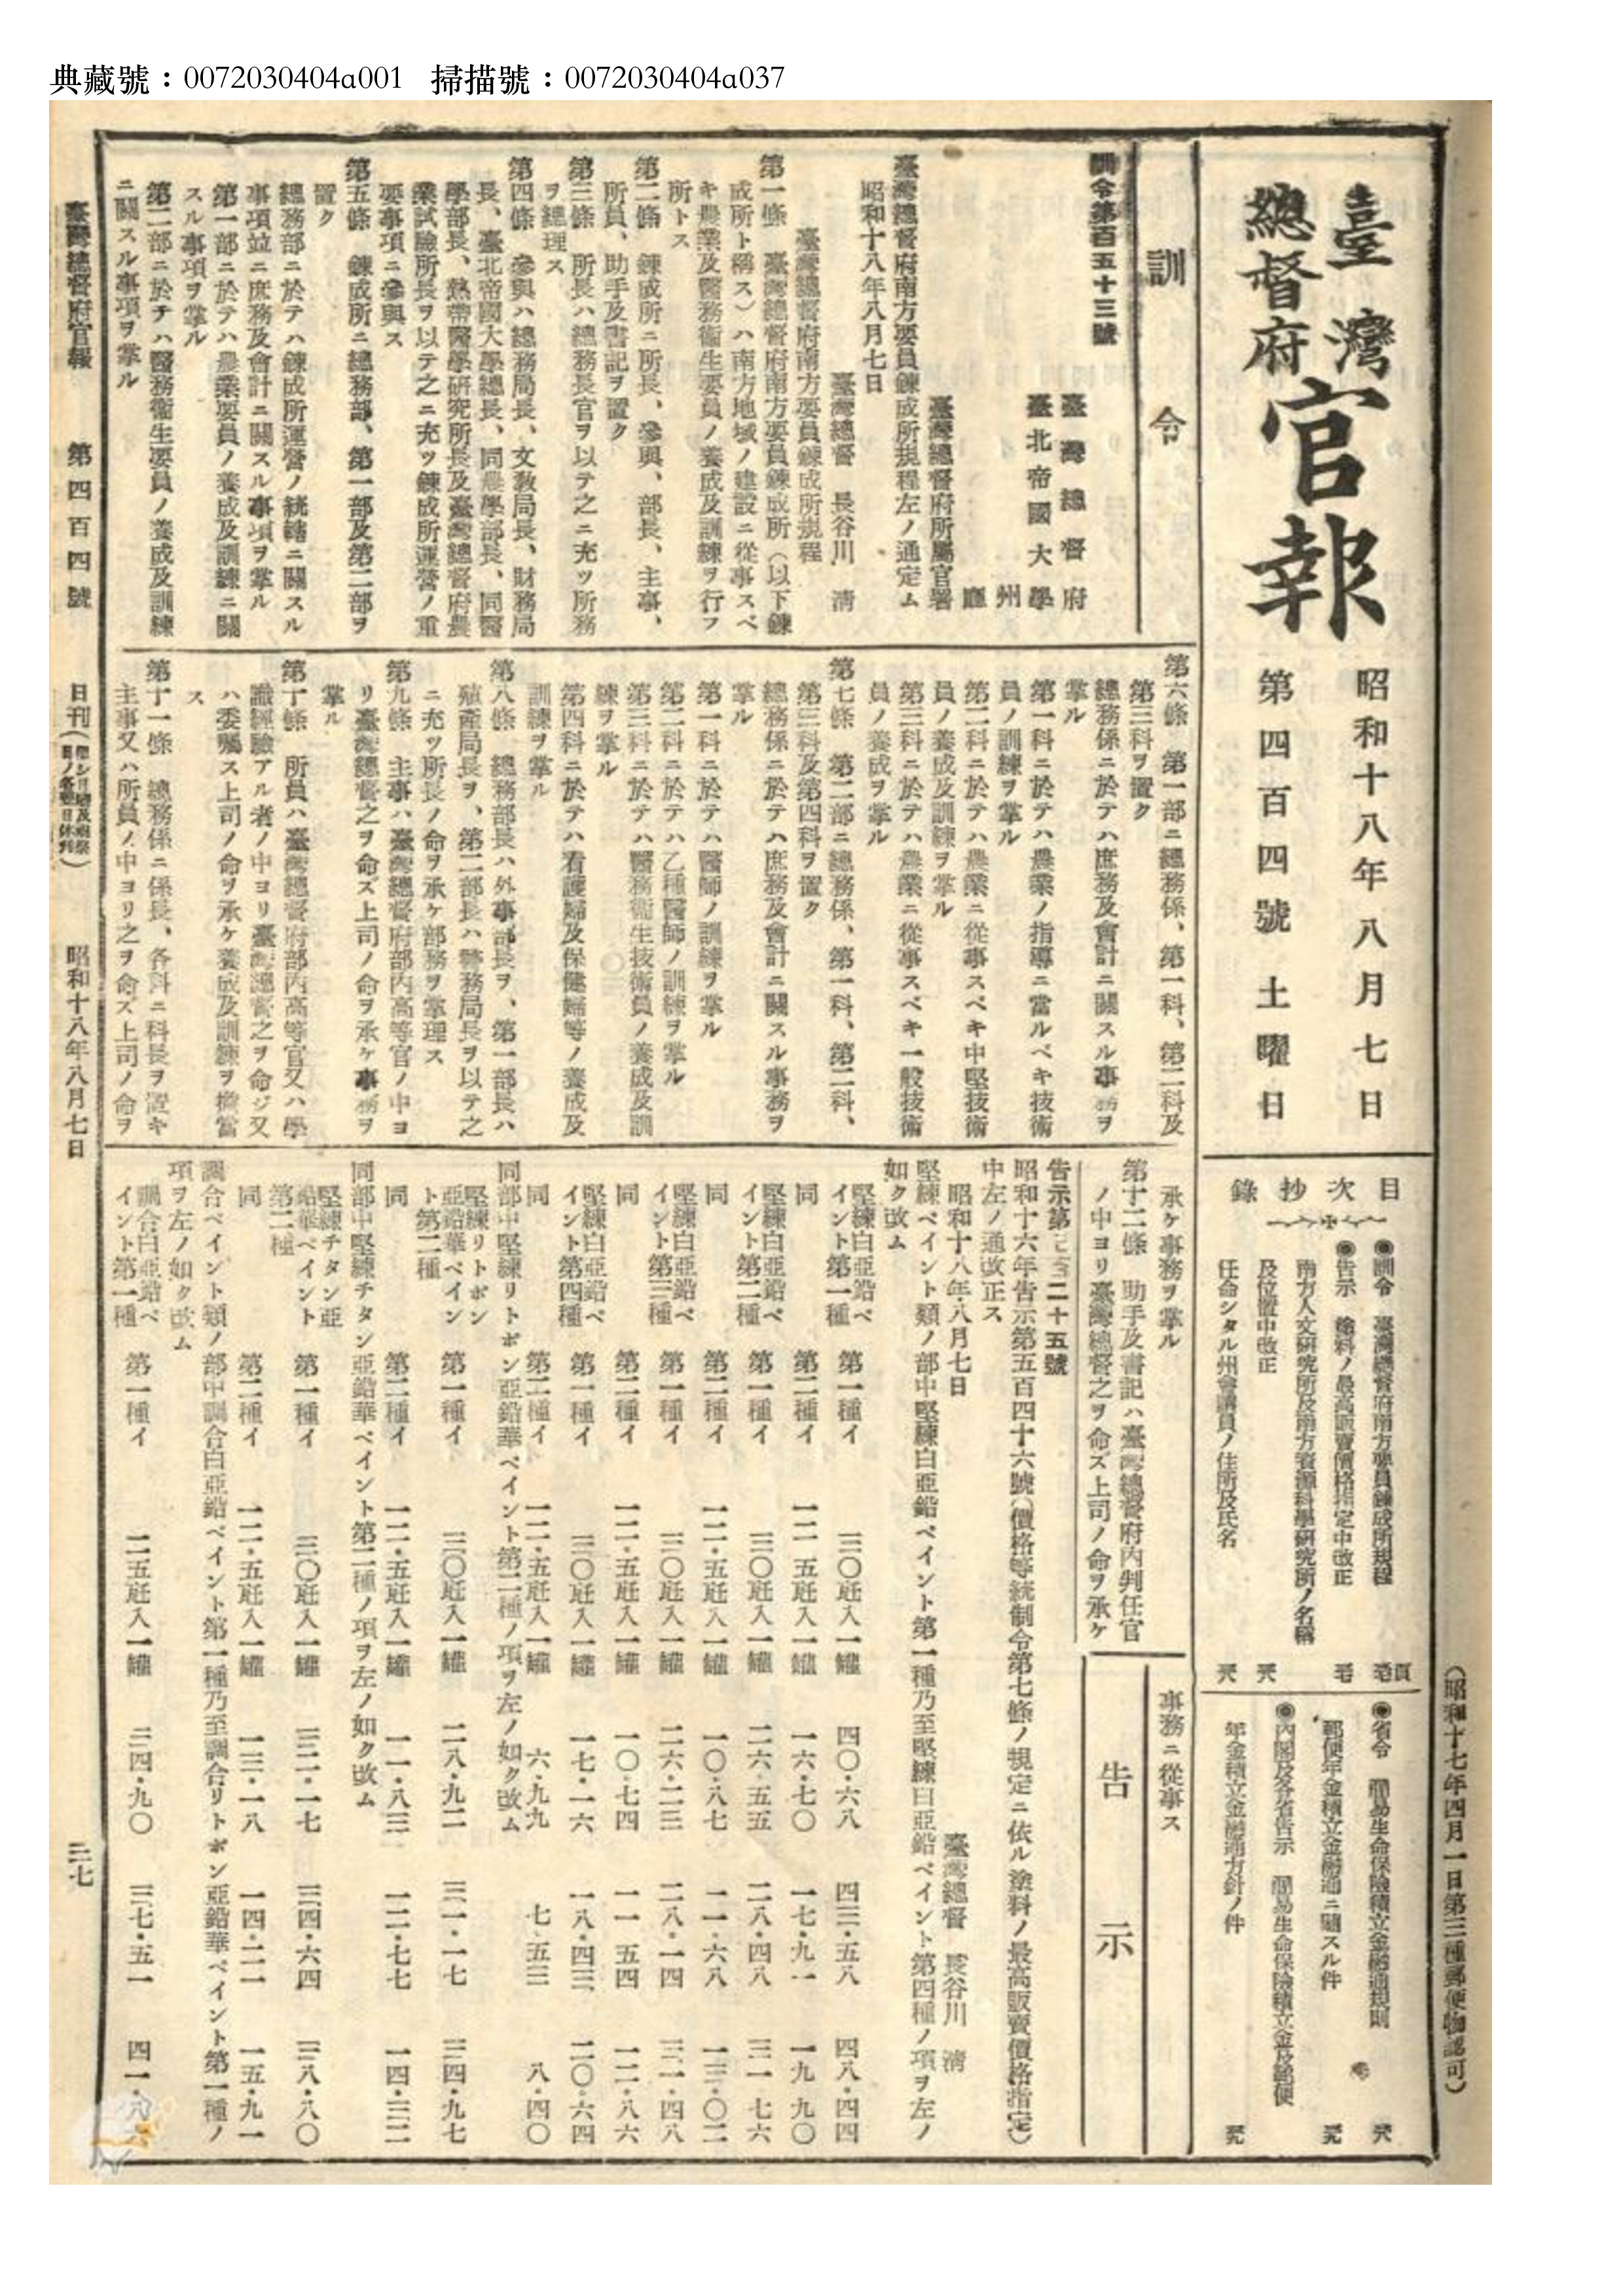 典藏號：0072030404a001 掃描號：0072030404a037
臺灣
總督府
官報
昭和十八年八月七日
第四百四號 土曜日
(昭和十七年四月一日第三種郵便物認可)
目次抄錄
◉訓令 臺灣總督府南方要員鍊成所規程
◉告示 塗料ノ最高販賣價格指定中改正
南方人文研究所及南方資源科學研究所ノ名稱
及位置中改正
任命シタル州會議員ノ住所及氏名
◉省令 簡易生命保險積立金融通規則
郵便年金積立金融通ニ關スル件
◉內閣及各省吿示 簡易生命保險積立金及郵便
年金積立金融通方針ノ件
訓令
訓令第百五十三號
臺灣總督府
臺北帝國大學
州
廳
臺灣總督府所屬官署
臺灣總督府南方要員鍊成所規程左ノ通定ム
昭和十八年八月七日
臺灣總督 長谷川 淸
臺灣總督府南方要員鍊成所規程
第一條 臺灣總督府南方要員鍊成所(以下鍊
成所ト稱ス)ハ南方地域ノ建設ニ從事スベ
キ農業及醫務衞生要員ノ養成及訓練ヲ行フ
所トス
第二條 鍊成所ニ所長、參與、部長、主事、
所員、助手及書記ヲ置ク
第三條 所長ハ總務長官ヲ以テ之ニ充ツ所務
ヲ總理ス
第四條 參與ハ總務局長、文敎局長、財務局
長、臺北帝國大學總長、同農學部長、同醫
學部長、熱帶醫學硏究所長及臺灣總督府農
業試驗所長ヲ以テ之ニ充ツ鍊成所運營ノ重
要事項ニ參與ス
第五條 鍊成所ニ總務部、第一部及第二部ヲ
置ク
總務部ニ於テハ鍊成所運營ノ統轄ニ關スル
事項竝ニ庶務及會計ニ關スル事項ヲ掌ル
第一部ニ於テハ農業要員ノ養成及訓練ニ關
スル事項ヲ掌ル
第二部ニ於テハ醫務衞生要員ノ養成及訓練
ニ關スル事項ヲ掌ル
第六條 第一部ニ總務係、第一科、第二科及
第三科ヲ置ク
總務係ニ於テハ庶務及會計ニ關スル事務ヲ
掌ル
第一科ニ於テハ農業ノ指導ニ當ルベキ技術
員ノ訓練ヲ掌ル
第二科ニ於テハ農業ニ從事スベキ中堅技術
員ノ養成及訓練ヲ掌ル
第三科ニ於テハ農業ニ從事スベキ一般技術
員ノ養成ヲ掌ル
第七條 第二部ニ總務係、第一科、第二科、
第三科及第四科ヲ置ク
總務係ニ於テハ庶務及會計ニ關スル事務ヲ
掌ル
第一科ニ於テハ醫師ノ訓練ヲ掌ル
第二科ニ於テハ乙種醫師ノ訓練ヲ掌ル
第三科ニ於テハ醫務衞生技術員ノ養成及訓
練ヲ掌ル
第四科ニ於テハ看護婦及保健婦等ノ養成及
訓練ヲ掌ル
第八條 總務部長ハ外事部長ヲ、第一部長ハ
殖產局長ヲ、第二部長ハ警務局長ヲ以テ之
ニ充ツ所長ノ命ヲ承ケ部務ヲ掌理ス
第九條 主事ハ臺灣總督府部內高等官ノ中ヨ
リ臺灣總督之ヲ命ズ上司ノ命ヲ承ケ事務ヲ
掌ル
第十條 所員ハ臺灣總督府部內高等官又ハ學
識經驗アル者ノ中ヨリ臺灣總督之ヲ命ジ又
ハ委囑ス上司ノ命ヲ承ケ養成及訓練ヲ擔當
ス
第十一條 總務係ニ係長、各科ニ科長ヲ置キ
主事又ハ所員ノ中ヨリ之ヲ命ズ上司ノ命ヲ
承ケ事務ヲ掌ル
第十二條 助手及書記ハ臺灣總督府內判任官
ノ中ヨリ臺灣總督之ヲ命ズ上司ノ命ヲ承ケ
事務ニ從事ス
告示
昭和十六年吿示第五百四十六號(價格等統制令第七條ノ規定ニ依ル塗料ノ最高販賣價格指定)
中左ノ通改正ス
昭和十八年八月七日
臺灣總督 長谷川 淸
堅練ペイント類ノ部中堅練白亞鉛ペイント第一種乃至堅練白亞鉛ペイント第四種ノ項ヲ左ノ
如ク改ム
堅練白亞鉛ペイント第一種 第一種イ 三〇瓩入一罐 四〇・六八 四三・五八 四八・四四
同 第二種イ 一二・五瓩入一罐 一六・七〇 一七・九一 一九・九〇
堅練白亞鉛ペイント第二種 第一種イ 三〇瓩入一罐 二六・五五 二八・四八 三一・七六
同 第二種イ 一二・五瓩入一罐 一〇・八七 一一・六八 一三・〇二
堅練白亞鉛ペイント第三種 第一種イ 三〇瓩入一罐 二六・二三 二八・一四 三一・四八
同 第二種イ 一二・五瓩入一罐 一〇・七四 一一・五四 一二・八六
堅練白亞鉛ペイント第四種 第一種イ 三〇瓩入一罐 一七・一六 一八・四三 二〇・六四
同 第二種イ 一二・五瓩入一罐 六・九九 七・五三 八・四〇
同部中堅練リトポン亞鉛華ペイント第二種ノ項ヲ左ノ如ク改ム
堅練リトポン亞鉛華ペイント第二種 第一種イ 三〇瓩入一罐 二八・九二 三一・一七 三四・九七
同 第二種イ 一二・五瓩入一罐 一一・八三 一二・七七 一四・三二
同部中堅練チタン亞鉛華ペイント第二種ノ項ヲ左ノ如ク改ム
堅練チタン亞鉛華ペイント第二種 第一種イ 三〇瓩入一罐 三二・一七 三四・六四 三八・八〇
同 第二種イ 一二・五瓩入一罐 一三・一八 一四・二一 一五・九一
調合ペイント類ノ部中調合白亞鉛ペイント第一種乃至調合リトポン亞鉛華ペイント第一種ノ
項ヲ左ノ如ク改ム
調合白亞鉛ペイント第一種 第一種イ 二五瓩入一罐 三四・九〇 三七・五一
臺灣總督府官報 第四百四號 日刊 昭和十八年八月七日 三七